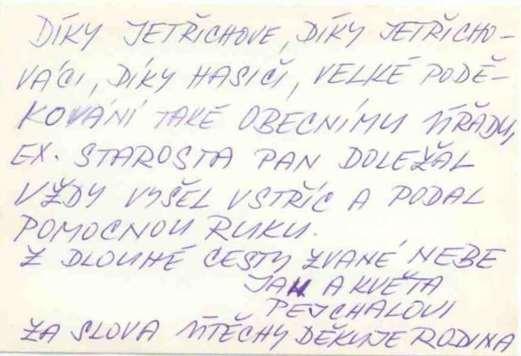 DÍKY JETŘICHOVE, DÍKY JETŘICHO-
VÁCI, DÍKY HASIČI, VELKÉ PODĚ-
KOVÁNÍ TAKÉ OBECNÍMU ÚŘADU,
EX. STAROSTA PAN DOLEŽAL
VŽDY VYŠEL VSTŘÍC A PODAL
POMOCNOU RUKU.
Z DLOUHÉ CESTY ZVANÉ NEBE
JAN A KVĚTA
PEJCHALOVI
ZA SLOVA ÚTĚCHY DĚKUJE RODINA